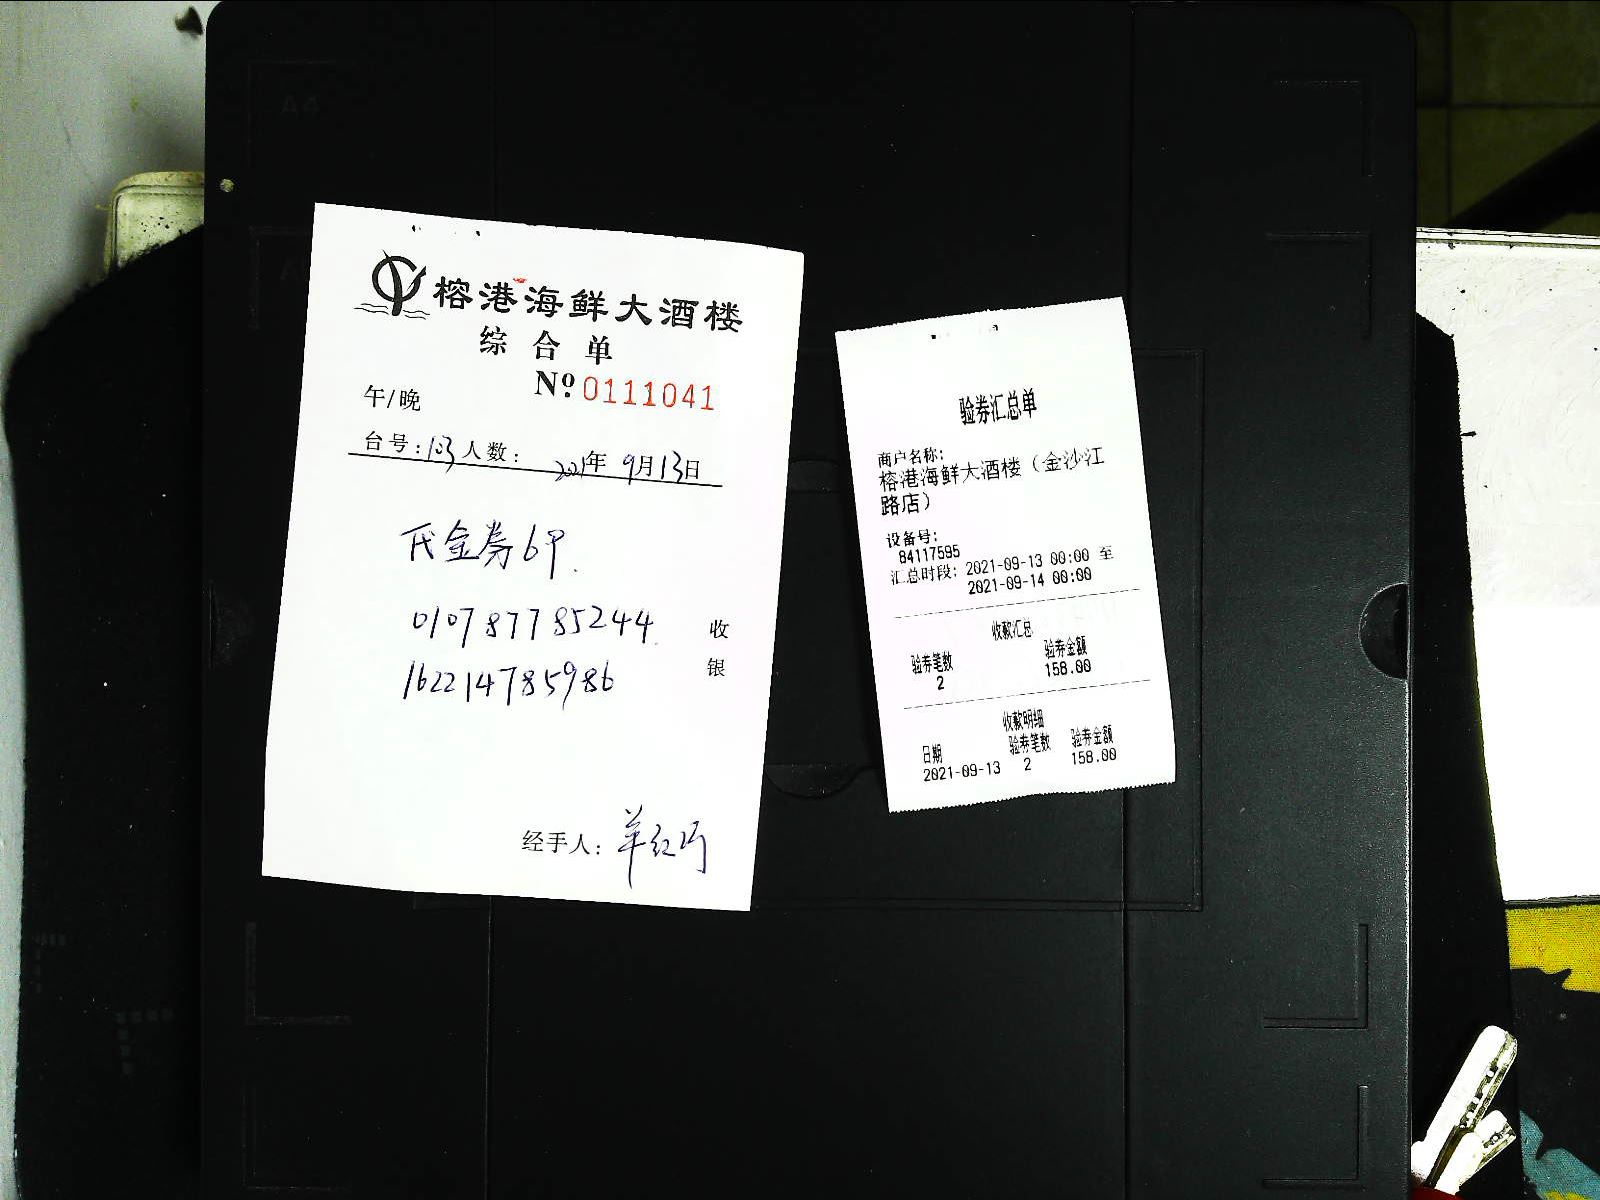 榕港海鲜大酒楼
综合单
Nº 0111041
午/晚
台号:103 人数: 2021年 9月13日
代金券6户.
010787785244
162214785986
收
银
经手人: 羊红巧
验券汇总单
商户名称:
榕港海鲜大酒楼（金沙江
路店）
设备号:
84117595
汇总时段: 2021-09-13 00:00 至
2021-09-14 00:00
收款汇总
验券笔数 验券金额
2 158.00
收款明细
日期 验券笔数 验券金额
2021-09-13 2 158.00
A4